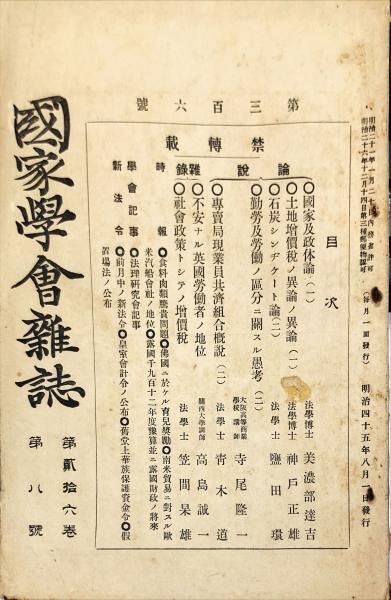 明治二十一年一月二十七日内務省許可
明治二十六年十二月十四日第三種郵便物認可
（毎月一回發行）
明治四十五年八月一日發行
第三百六號
禁轉載
目次
論說
國家及政体論（一） 法學博士 美濃部達吉
土地增價稅ノ異論ノ異論（一） 法學博士 神戶正雄
石炭シンヂケート論（二） 法學士 鹽田環
勤勞及勞働ノ區分ニ關スル愚考（二） 大阪高等商業學校講師 寺尾隆一
雜錄
專賣局現業員共濟組合概說（二） 法學士 青木道
不安ナル英國勞働者ノ地位 關西大學講師 高島誠一
社會政策トシテノ增價稅 法學士 笠間杲雄
時報 食料肉類騰貴問題 佛國ニ於ケル育兒獎勵 南米貿易ニ對スル歐
米汽船會社ノ地位 露國千九百十二年度豫算並ニ露國財政ノ將來
學會記事 法理硏究會記事
新法令 前月中ノ新法令 皇室會計令ノ公布 舊堂上華族保護資金令 假
置場法ノ公布
國家學會雜誌
第貳拾六卷
第八號